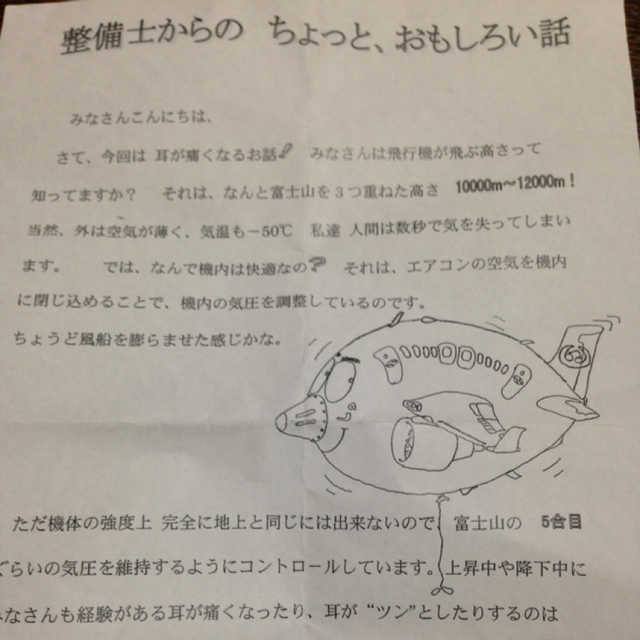 整備士からの ちょっと、おもしろい話
みなさんこんにちは、
さて、今回は 耳が痛くなるお話! みなさんは飛行機が飛ぶ高さって
知ってますか? それは、なんと富士山を3つ重ねた高さ 10000m〜12000m!
当然、外は空気が薄く、気温も−50℃ 私達 人間は数秒で気を失ってしまい
ます。 では、なんで機内は快適なの? それは、エアコンの空気を機内
に閉じ込めることで、機内の気圧を調整しているのです。
ちょうど風船を膨らませた感じかな。
ただ機体の強度上 完全に地上と同じには出来ないので、富士山の 5合目
ぐらいの気圧を維持するようにコントロールしています。上昇中や降下中に
みなさんも経験がある耳が痛くなったり、耳が“ツン”としたりするのは